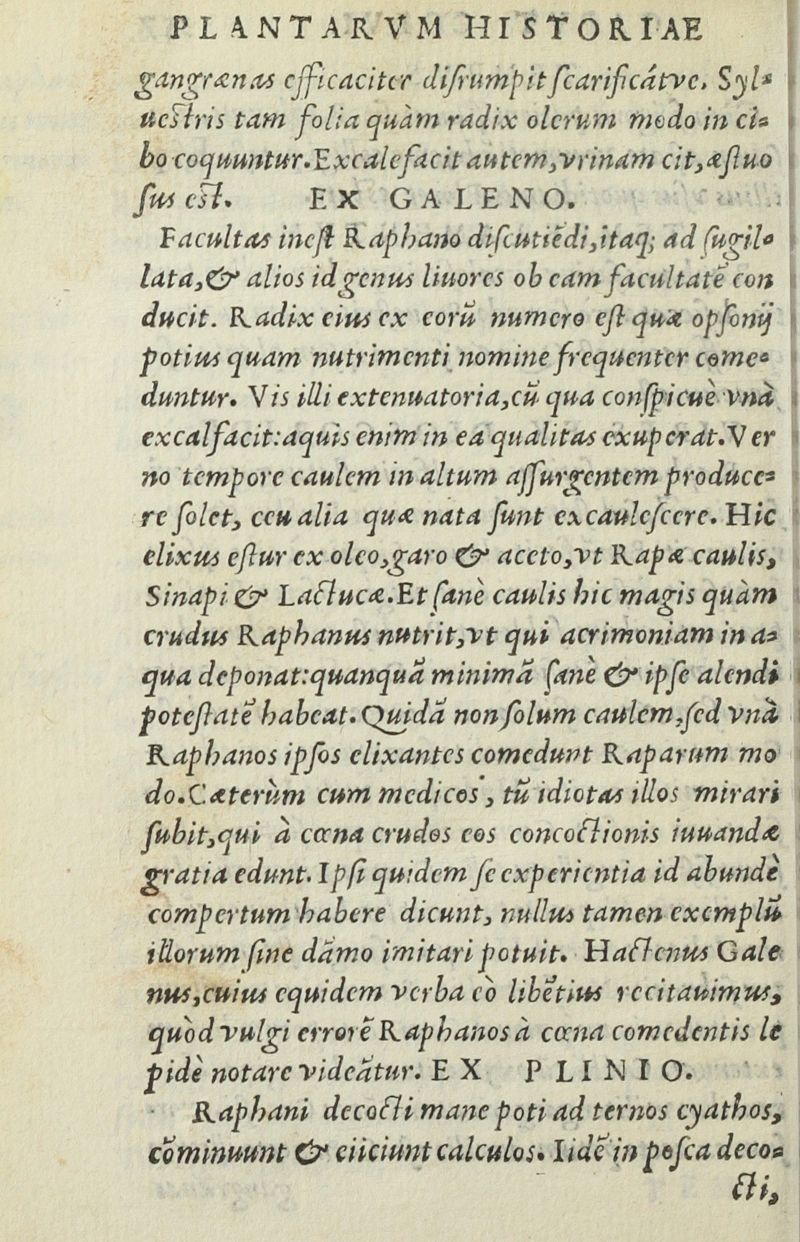 PLANTARVM HISTORIAE
gangrænas efficaciter disrumpit scarificátve. Syl-
uestris tam folia quàm radix olerum modo in ci-
bo coquuntur. Excalefacit autem, vrinam cit, æstuo
sus est. EX GALENO.
Facultas inest Raphano discutiēdi, itaq; ad sugil-
lata, & alios id genus liuores ob eam facultatē con
ducit. Radix eius ex eorū numero est quæ opsonij
potius quam nutrimenti nomine frequenter come-
duntur. Vis illi extenuatoria, cū qua conspicuè vnà
excalfacit: aquis enim in ea qualitas exuperat. Ver
no tempore caulem in altum assurgentem produce-
re solet, ceu alia quæ nata sunt excaulescere. Hic
elixus estur ex oleo, garo & aceto, vt Rapæ caulis,
Sinapi & Lactucæ. Et sanè caulis hic magis quàm
crudus Raphanus nutrit, vt qui acrimoniam in a-
qua deponat: quanquā minimā sanè & ipse alendi
potestatē habeat. Quidā non solum caulem, sed vnà
Raphanos ipsos elixantes comedunt Raparum mo
do. Cæterùm cum medicos, tū idiotas illos mirari
subit, qui à cœna crudos eos concoctionis iuuandæ
gratia edunt. Ipsi quidem se experientia id abundè
compertum habere dicunt, nullus tamen exemplū
illorum sine dāmo imitari potuit. Hactenus Gale
nus, cuius equidem verba eò libētius recitauimus,
quòd vulgi errorē Raphanos à cœna comedentis le
pidè notare videātur. EX PLINIO.
Raphani decocti mane poti ad ternos cyathos,
cōminuunt & eiiciunt calculos. Iidē in posca deco-
cti,